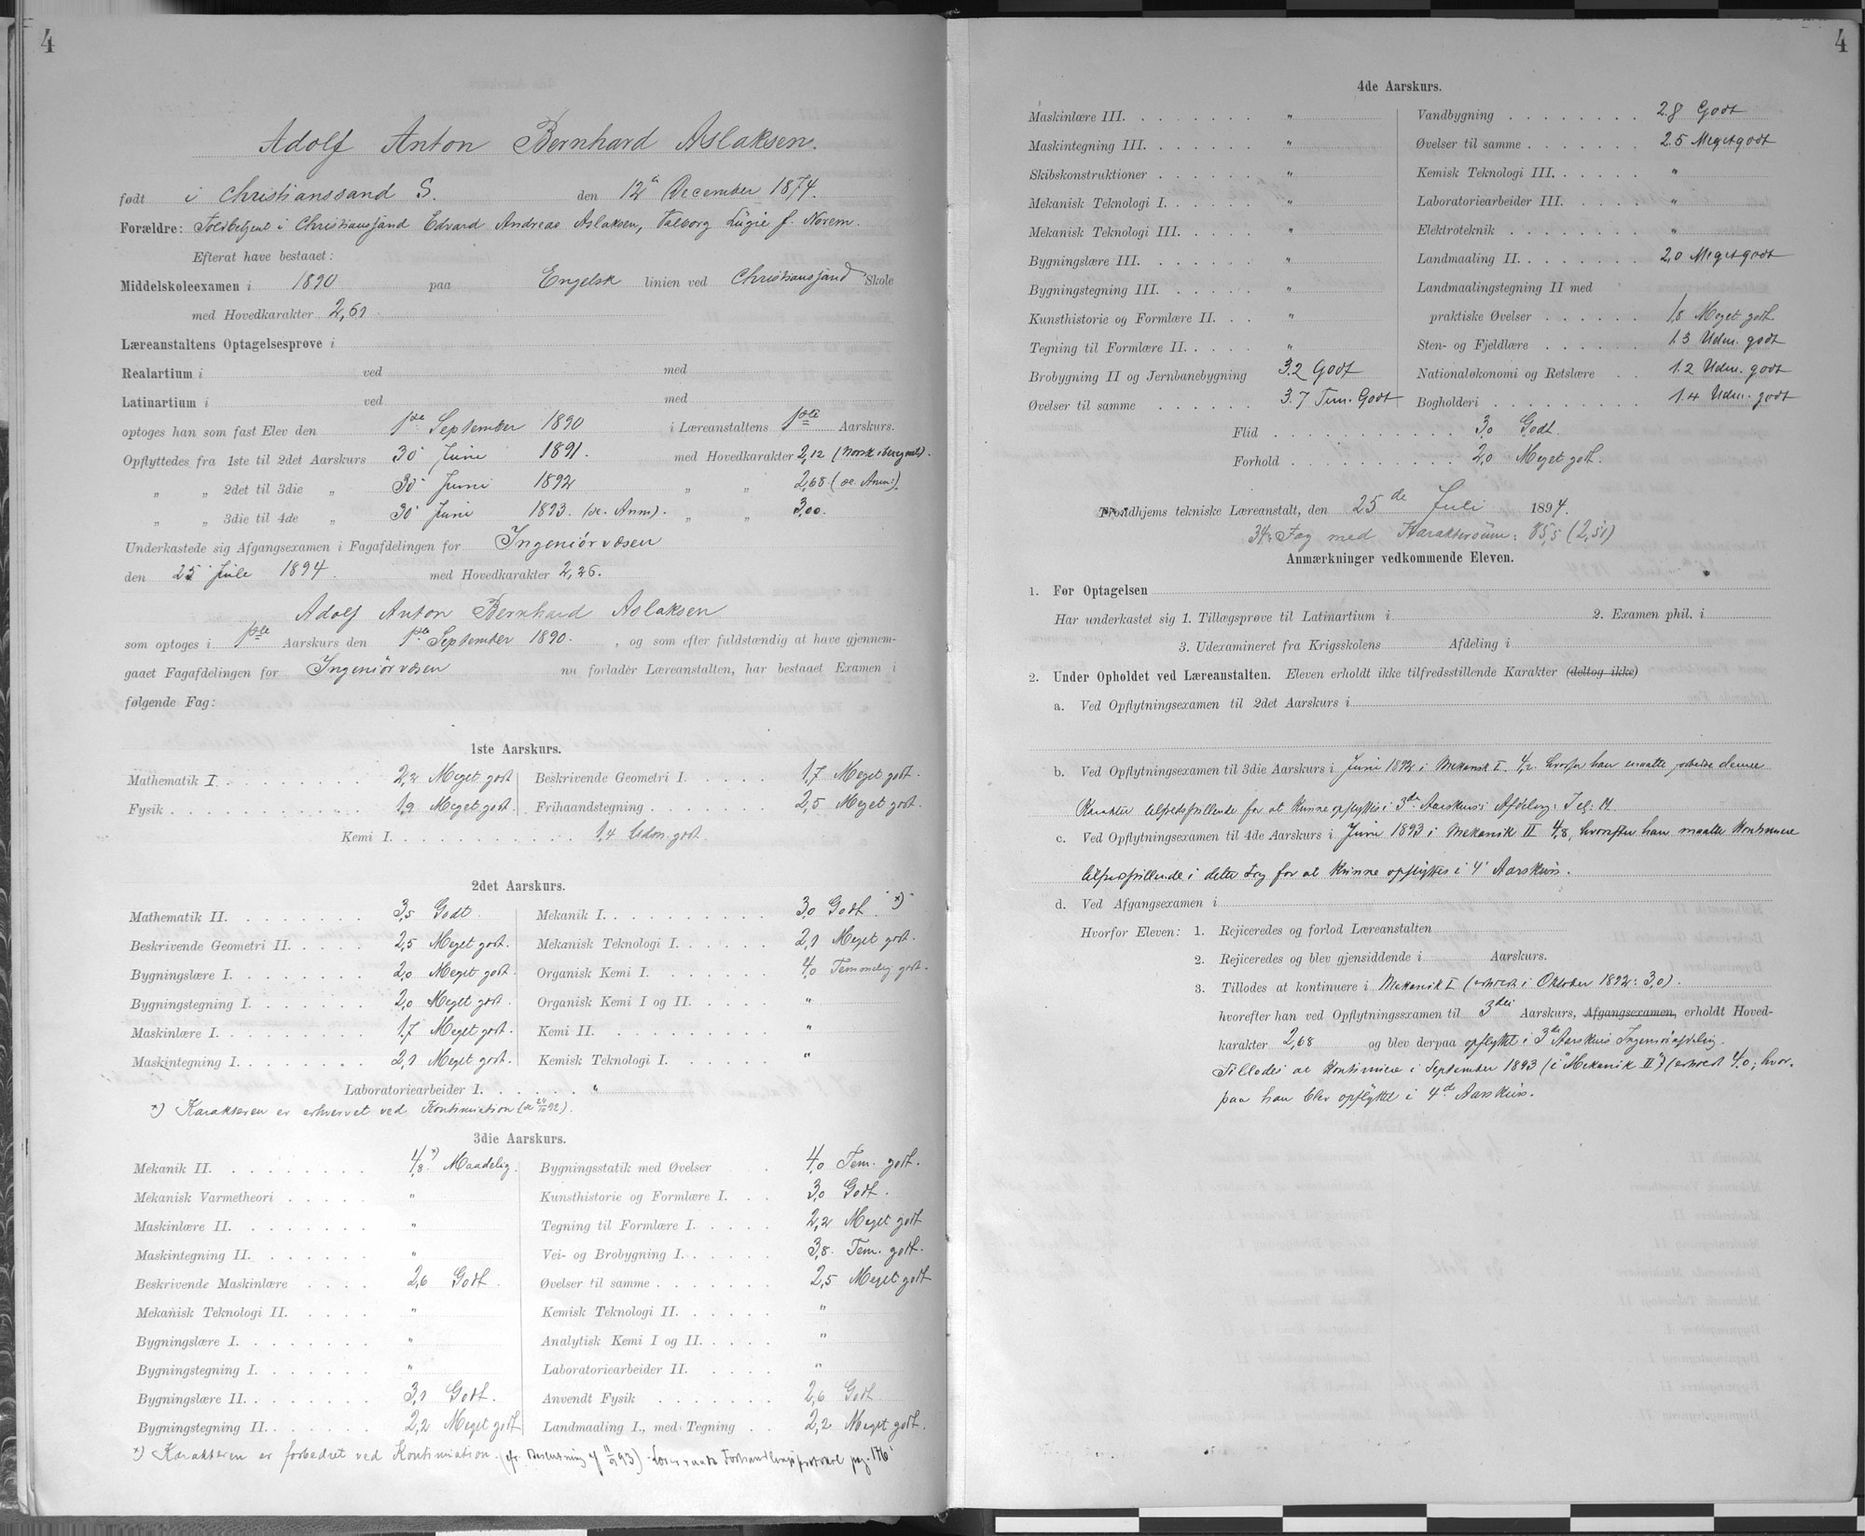 4
Adolf Anton Bernhard Aslaksen.
født i Christianssand S. den 12te December 1874.
Forældre: Toldbetjent i Christianssand Edvard Andreas Aslaksen, Valborg f. Norem.
Efterat have bestaaet:
Middelskoleexamen i 1890 paa Engelsk linien ved Christianssand Skole
med Hovedkarakter 2,61
Læreanstaltens Optagelsesprøve i
Realartium i ved med
Latinartium i ved med
optoges han som fast Elev den 1ste September 1890 i Læreanstaltens 1ste Aarskurs.
Opflyttedes fra 1ste til 2det Aarskurs 30 Juni 1891. med Hovedkarakter 2,12
„ „ 2det til 3die „ 30 Juni 1892 „ „ 2,68 (se Anm:).
„ „ 3die til 4de „ 30 Juni 1893. (se Anm). „ „ 3,00.
Underkastede sig Afgangsexamen i Fagafdelingen for Ingeniörvæsen
den 25 Juli 1894. med Hovedkarakter 2,26.
Adolf Anton Bernhard Aslaksen
som optoges i 1ste Aarskurs den 1ste September 1890. , og som efter fuldstændig at have gjennem-
gaaet Fagafdelingen for Ingeniörvæsen nu forlader Læreanstalten, har bestaaet Examen i
følgende Fag:
1ste Aarskurs.
Mathematik I 2,2 Meget godt Beskrivende Geometri I 1,7 Meget godt.
Fysik 1,9 Meget godt. Frihaandstegning 2,5 Meget godt.
Kemi I 1,4 Udm. godt.
2det Aarskurs.
Mathematik II. 3,5 Godt Mekanik I. 3,0 Godt. *)
Beskrivende Geometri II 2,5 Meget godt. Mekanisk Teknologi I. 2,1 Meget godt.
Bygningslære I. 2,0 Meget godt. Organisk Kemi I. 4,0 Temmelig godt.
Bygningstegning I. 2,0 Meget godt. Organisk Kemi I og II. "
Maskinlære I. 1,7 Meget godt. Kemi II. "
Maskintegning I. 2,1 Meget godt. Kemisk Teknologi I. "
Laboratoriearbeider I. "
*) Karakteren er erhvervet ved Kontinuation
3die Aarskurs.
Mekanik II. 4,8 *) Maadelig. Bygningsstatik med Øvelser 4,0 Tem. godt.
Mekanisk Varmetheori " Kunsthistorie og Formlære I. 3,0 Godt.
Maskinlære II. " Tegning til Formlære I. 2,2 Meget godt
Maskintegning II. " Vei- og Brobygning I. 3,8. Tem. godt.
Beskrivende Maskinlære 2,6 Godt. Øvelser til samme 2,5 Meget godt
Mekanisk Teknologi II. " Kemisk Teknologi II. "
Bygningslære I. " Analytisk Kemi I og II. "
Bygningstegning I. " Laboratoriearbeider II. "
Bygningslære II. 3,1 Godt. Anvendt Fysik 2,6 Godt
Bygningstegning II. 2,2 Meget godt Landmaaling I., med Tegning 2,2 Meget godt.
*) Karakteren er forbedret ved Kontinuation.
4
4de Aarskurs.
Maskinlære III. " Vandbygning 2.8 Godt
Maskintegning III. " Øvelser til samme 2.5 Meget godt
Skibskonstruktioner " Kemisk Teknologi III. "
Mekanisk Teknologi I. " Laboratoriearbeider III. "
Mekanisk Teknologi III. " Elektroteknik "
Bygningslære III. " Landmaaling II. 2,0 Meget godt
Bygningstegning III. " Landmaalingstegning II med
Kunsthistorie og Formlære II. " praktiske Øvelser 1,8 Meget godt
Tegning til Formlære II. " Sten- og Fjeldlære 1.3 Udm. godt
Brobygning II og Jernbanebygning 3.2 Godt Nationaløkonomi og Retslære 1.2 Udm. godt
Øvelser til samme 3.7 Tem. Godt Bogholderi 1.4 Udm. godt
Flid 3,0 Godt.
Forhold 2,0 Meget godt.
Trondhjems tekniske Læreanstalt, den 25de Juli 1894.
34 Fag med Karaktersum: 85,5 (2,51)
Anmærkninger vedkommende Eleven.
1. Før Optagelsen
Har underkastet sig 1. Tillægsprøve til Latinartium i 2. Examen phil. i
3. Udexamineret fra Krigsskolens Afdeling i
2. Under Opholdet ved Læreanstalten. Eleven erholdt ikke tilfredsstillende Karakter (deltog ikke)
a. Ved Opflytningsexamen til 2det Aarskurs i
b. Ved Opflytningsexamen til 3die Aarskurs i Juni 1892 i Mekanik I. 4,2. hvorfor han maatte forbedre denne
Karakter tilfredsstillende for at kunne opflyttes i 3die Aarskurs
c. Ved Opflytningsexamen til 4de Aarskurs i Juni 1893 i Mekanik II 4,8, hvorefter han maatte kontinuere
tilfredsstillende i dette Fag for at kunne opflyttes i 4 Aarskurs.
d. Ved Afgangsexamen i
Hvorfor Eleven: 1. Rejiceredes og forlod Læreanstalten
2. Rejiceredes og blev gjensiddende i Aarskurs.
3. Tillodes at kontinuere i Mekanik I (erhvervet i Oktober 1892: 3,0).
hvorefter han ved Opflytningssxamen til 3die Aarskurs, Afgangsexamen, erholdt Hoved-
karakter 2,68 og blev derpaa opflyttet i 3die Aarskurs Ingeniörafdeling.
Tillodes at kontinuere i September 1893 (i "Mekanik II") (erhvervet 4.0; hvor-
paa han blev opflyttet i 4de Aarskurs.